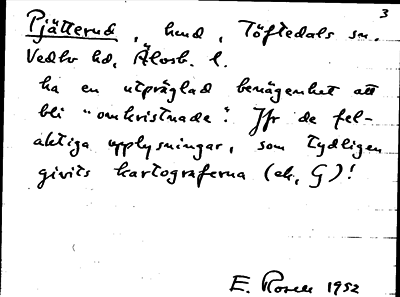 3
Pjätterud, hmd, Töftedals sn.
Vedbo hd, Älvsb. l.
ha en utpräglad benägenhet att
bli "omkristnade". Jfr de fel-
aktiga upplysningar, som tydligen
givits kartograferna (ek, G)!
E. Rosell 1952